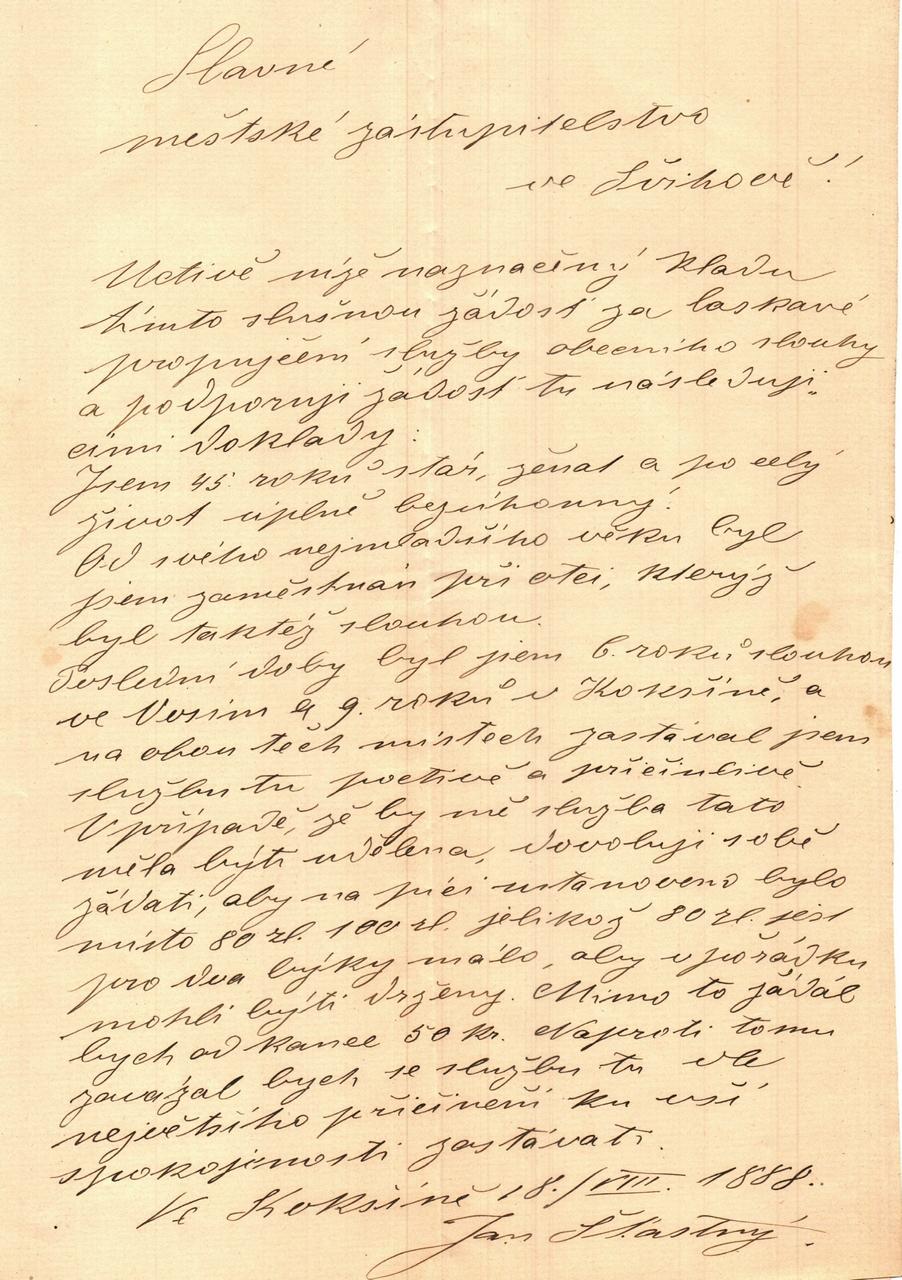 Slavné
městské zástupitelstvo
ve Švihově!
Uctivě níže naznačený kladu
tímto slušnou žádosť za laskavé
propujčení služby obecního slouhy
a podporuji žádosť tu následují„
cími doklady:
Jsem 45 roků stár, ženat a po celý
život úplně bezúhonný.
Od svého nejmladšího věku byl
jsem zaměstnán při otci, kterýž
byl taktéž slouhou.
Poslední doby byl jsem 6. roků slouhou
ve Vosím a 9. roků v Kokšíně, a
na obou těch místech zastával jsem
službu tu poctivě a přičinlivě
V případě, že by mě služba tato
měla býti udělena, dovoluji sobě
žádati, aby na píci ustanoveno bylo
místo 80 zl. 100 zl. jelikož 80 zl. jest
pro dva býky málo, aby v pořádku
mohli býti drženy. Mimo to žádál
bych od kance 50 kr. Naproti tomu
zavázal bych se službu tu dle
největšího přičinění ku vší
spokojenosti zastávati.
Ve Kokšíně 18./VIII. 1888.
Jan Šťastný.